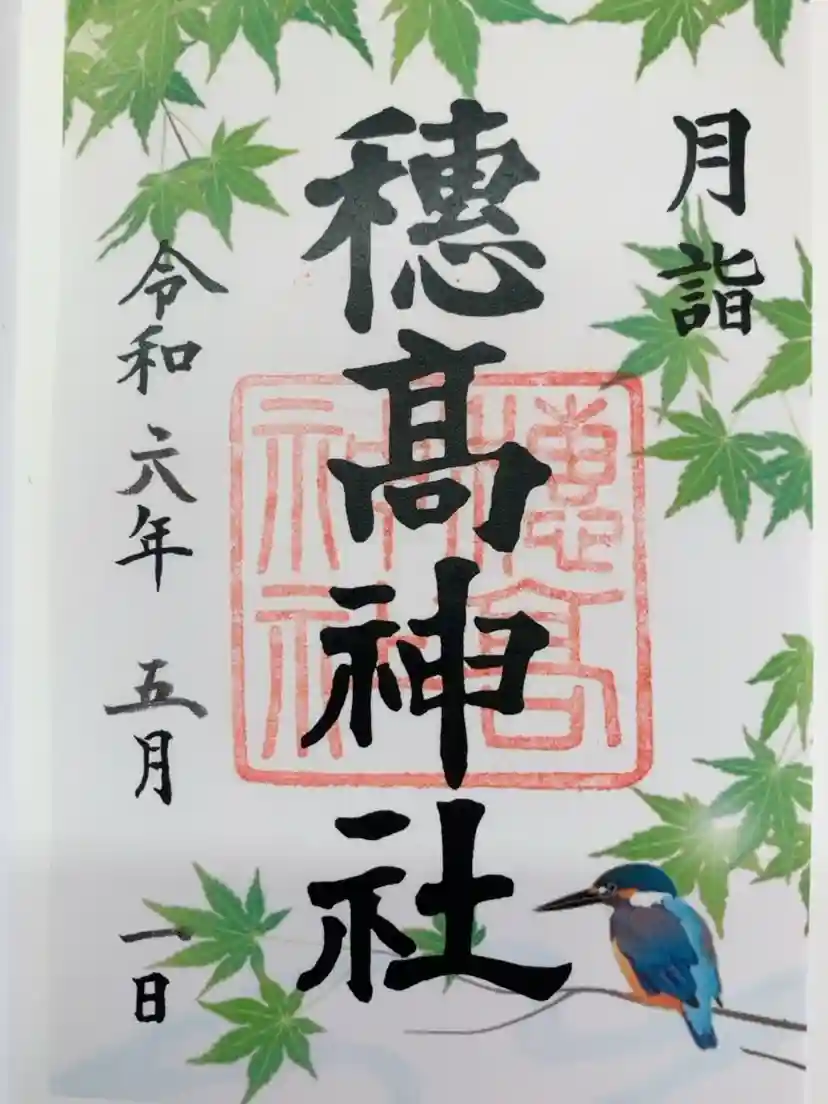 月詣
穗髙神社
穗髙
神社
令和六年 五月 一日